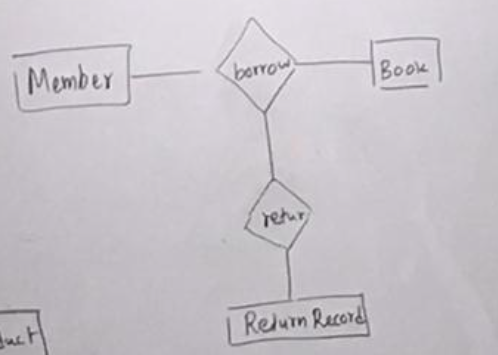 Member
borrow
Book
retur
Return Record
duct